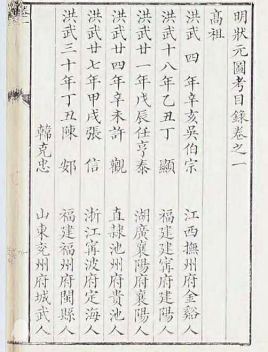 明狀元圖考目錄卷之一
高祖
洪武 四 年辛亥吳伯宗 江西撫州府金谿人
洪武十八年乙丑丁 顯 福建建寧府建陽人
洪武廿一年戊辰任亨泰 湖廣襄陽府襄陽人
洪武廿四年辛未許 觀 直隷池州府貴池人
洪武廿七年甲戌張 信 浙江寧波府定海人
洪武三十年丁丑陳 䢿 福建福州府閩縣人
韓克忠 山東兗州府城武人